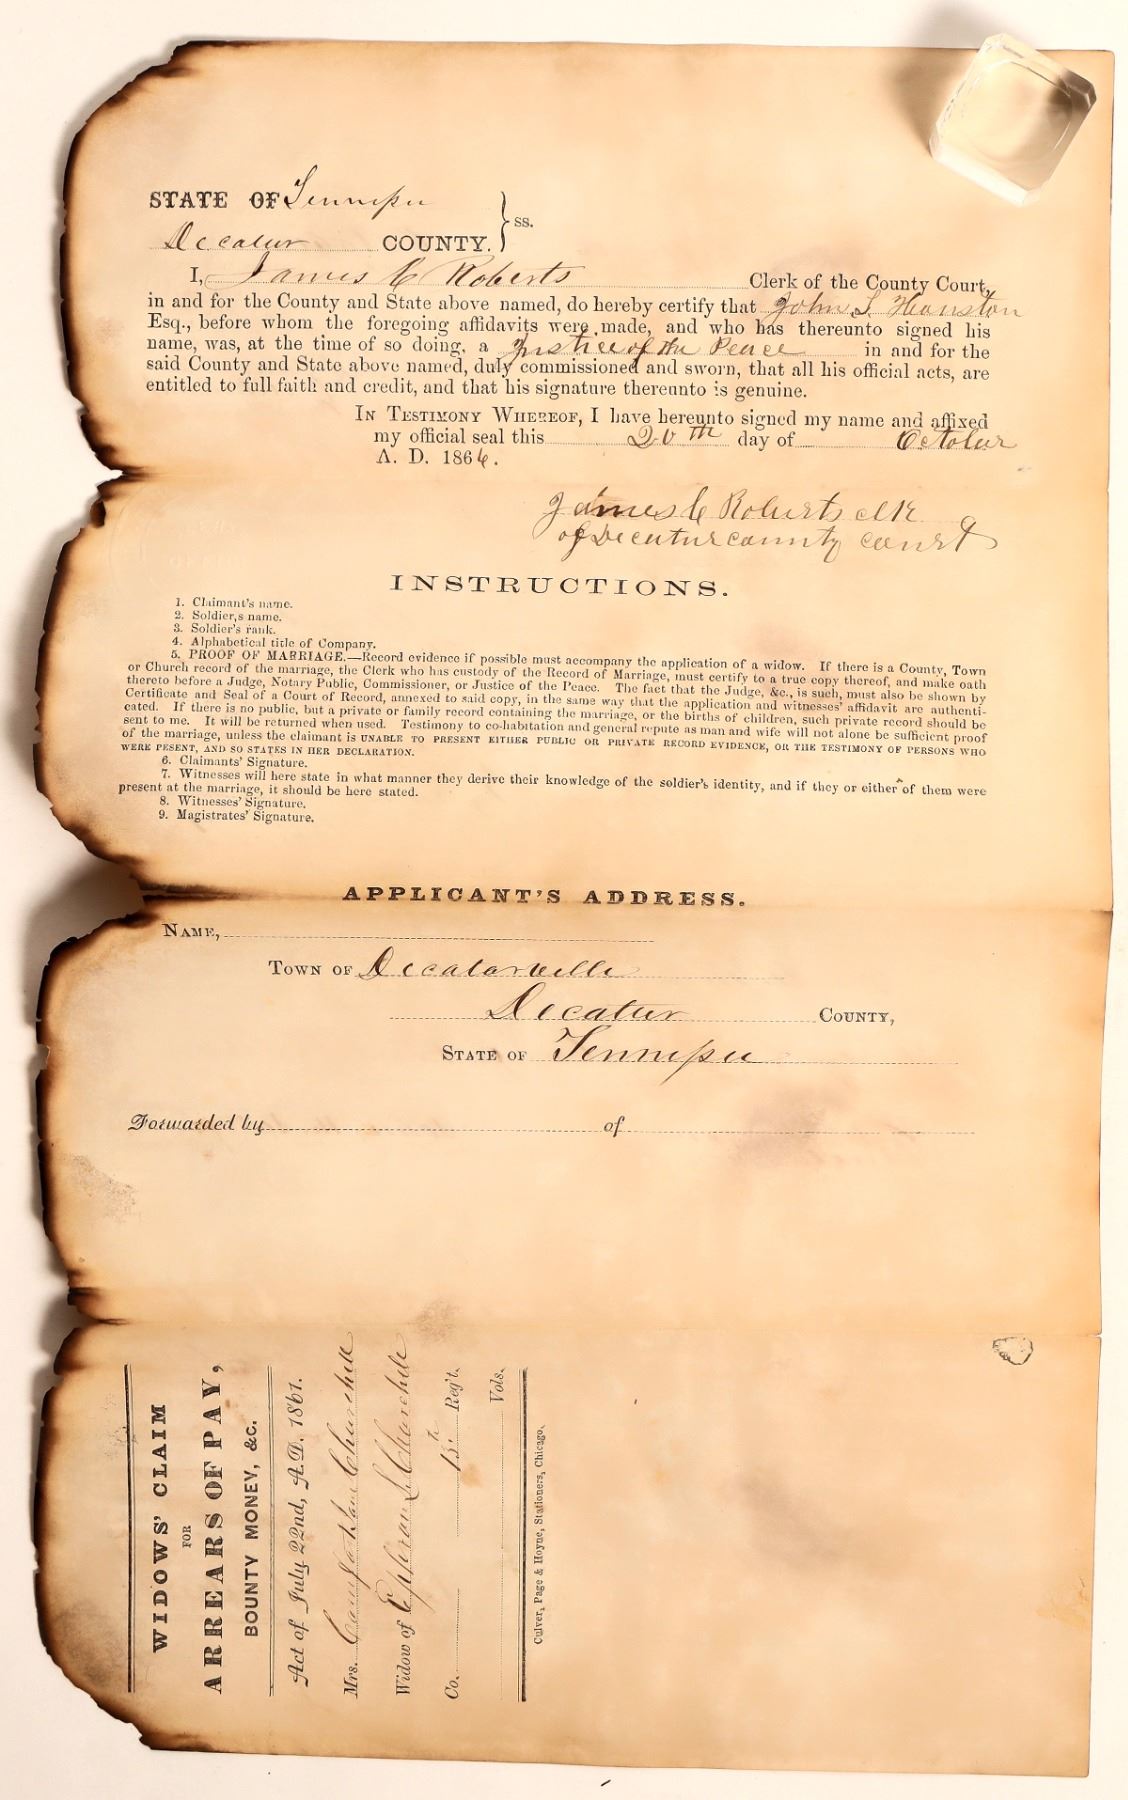 STATE OF Tennessee
Decatur COUNTY. } ss.
I, James C Roberts Clerk of the County Court,
in and for the County and State above named, do hereby certify that John S Houston
Esq., before whom the foregoing affidavits were made, and who has thereunto signed his
name, was, at the time of so doing, a Justice of the Peace in and for the
said County and State above named, duly commissioned and sworn, that all his official acts, are
entitled to full faith and credit, and that his signature thereunto is genuine.
IN TESTIMONY WHEREOF, I have hereunto signed my name and affixed
my official seal this 20th day of October
A. D. 1866.
James C Roberts clk
of Decatur county court
INSTRUCTIONS.
1. Claimant's name.
2. Soldier,s name.
3. Soldier's rank.
4. Alphabetical title of Company.
5. PROOF OF MARRIAGE.—Record evidence if possible must accompany the application of a widow. If there is a County, Town
or Church record of the marriage, the Clerk who has custody of the Record of Marriage, must certify to a true copy thereof, and make oath
thereto before a Judge, Notary Public, Commissioner, or Justice of the Peace. The fact that the Judge, &c., is such, must also be shown by
Certificate and Seal of a Court of Record, annexed to said copy, in the same way that the application and witnesses' affidavit are authenti-
cated. If there is no public, but a private or family record containing the marriage, or the births of children, such private record should be
sent to me. It will be returned when used. Testimony to co-habitation and general repute as man and wife will not alone be sufficient proof
of the marriage, unless the claimant is UNABLE TO PRESENT EITHER PUBLIC OR PRIVATE RECORD EVIDENCE, OR THE TESTIMONY OF PERSONS WHO
WERE PESENT, AND SO STATES IN HER DECLARATION.
6. Claimants' Signature.
7. Witnesses will here state in what manner they derive their knowledge of the soldier's identity, and if they or either of them were
present at the marriage, it should be here stated.
8. Witnesses' Signature.
9. Magistrates' Signature.
APPLICANT'S ADDRESS.
NAME,
TOWN OF Decatarville
Decatur COUNTY,
STATE OF Tennessee
Forwarded by of
WIDOWS' CLAIM
FOR
ARREARS OF PAY,
BOUNTY MONEY, &c.
Act of July 22nd, A.D. 1861.
Mrs. Churchill
Widow of Ephriam L Churchile
Co. 13th Reg't.
Vols.
Culver, Page & Hoyne, Stationers, Chicago.